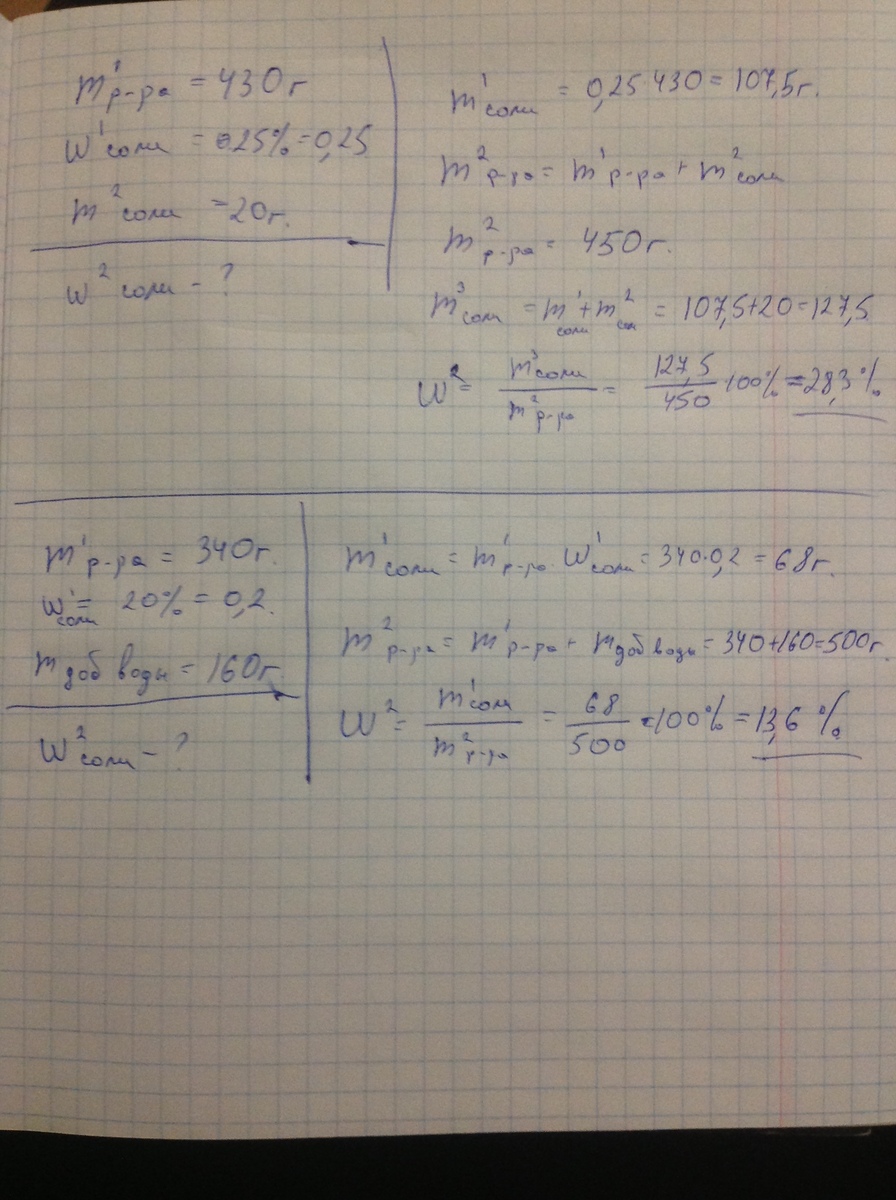 m¹р-ра = 430 г
w¹соли = 25% = 0,25
m²соли = 20 г.
w² соли - ?
m¹соли = 0,25·430 = 107,5 г.
m²р-ра = m¹р-ра + m²соли
m²р-ра = 450 г.
m³соли = m¹соли + m²соли = 107,5+20=127,5
w² = m³соли / m²р-ра = 127,5 / 450 ·100% = 28,3 %
m¹р-ра = 340 г.
w¹соли = 20% = 0,2.
m доб воды = 160 г
w²соли - ?
m¹соли = m¹р-ра · w¹соли = 340·0,2 = 68 г.
m²р-ра = m¹р-ра + m доб воды = 340+160=500 г.
w² = m¹соли / m²р-ра = 68 / 500 ·100% = 13,6 %